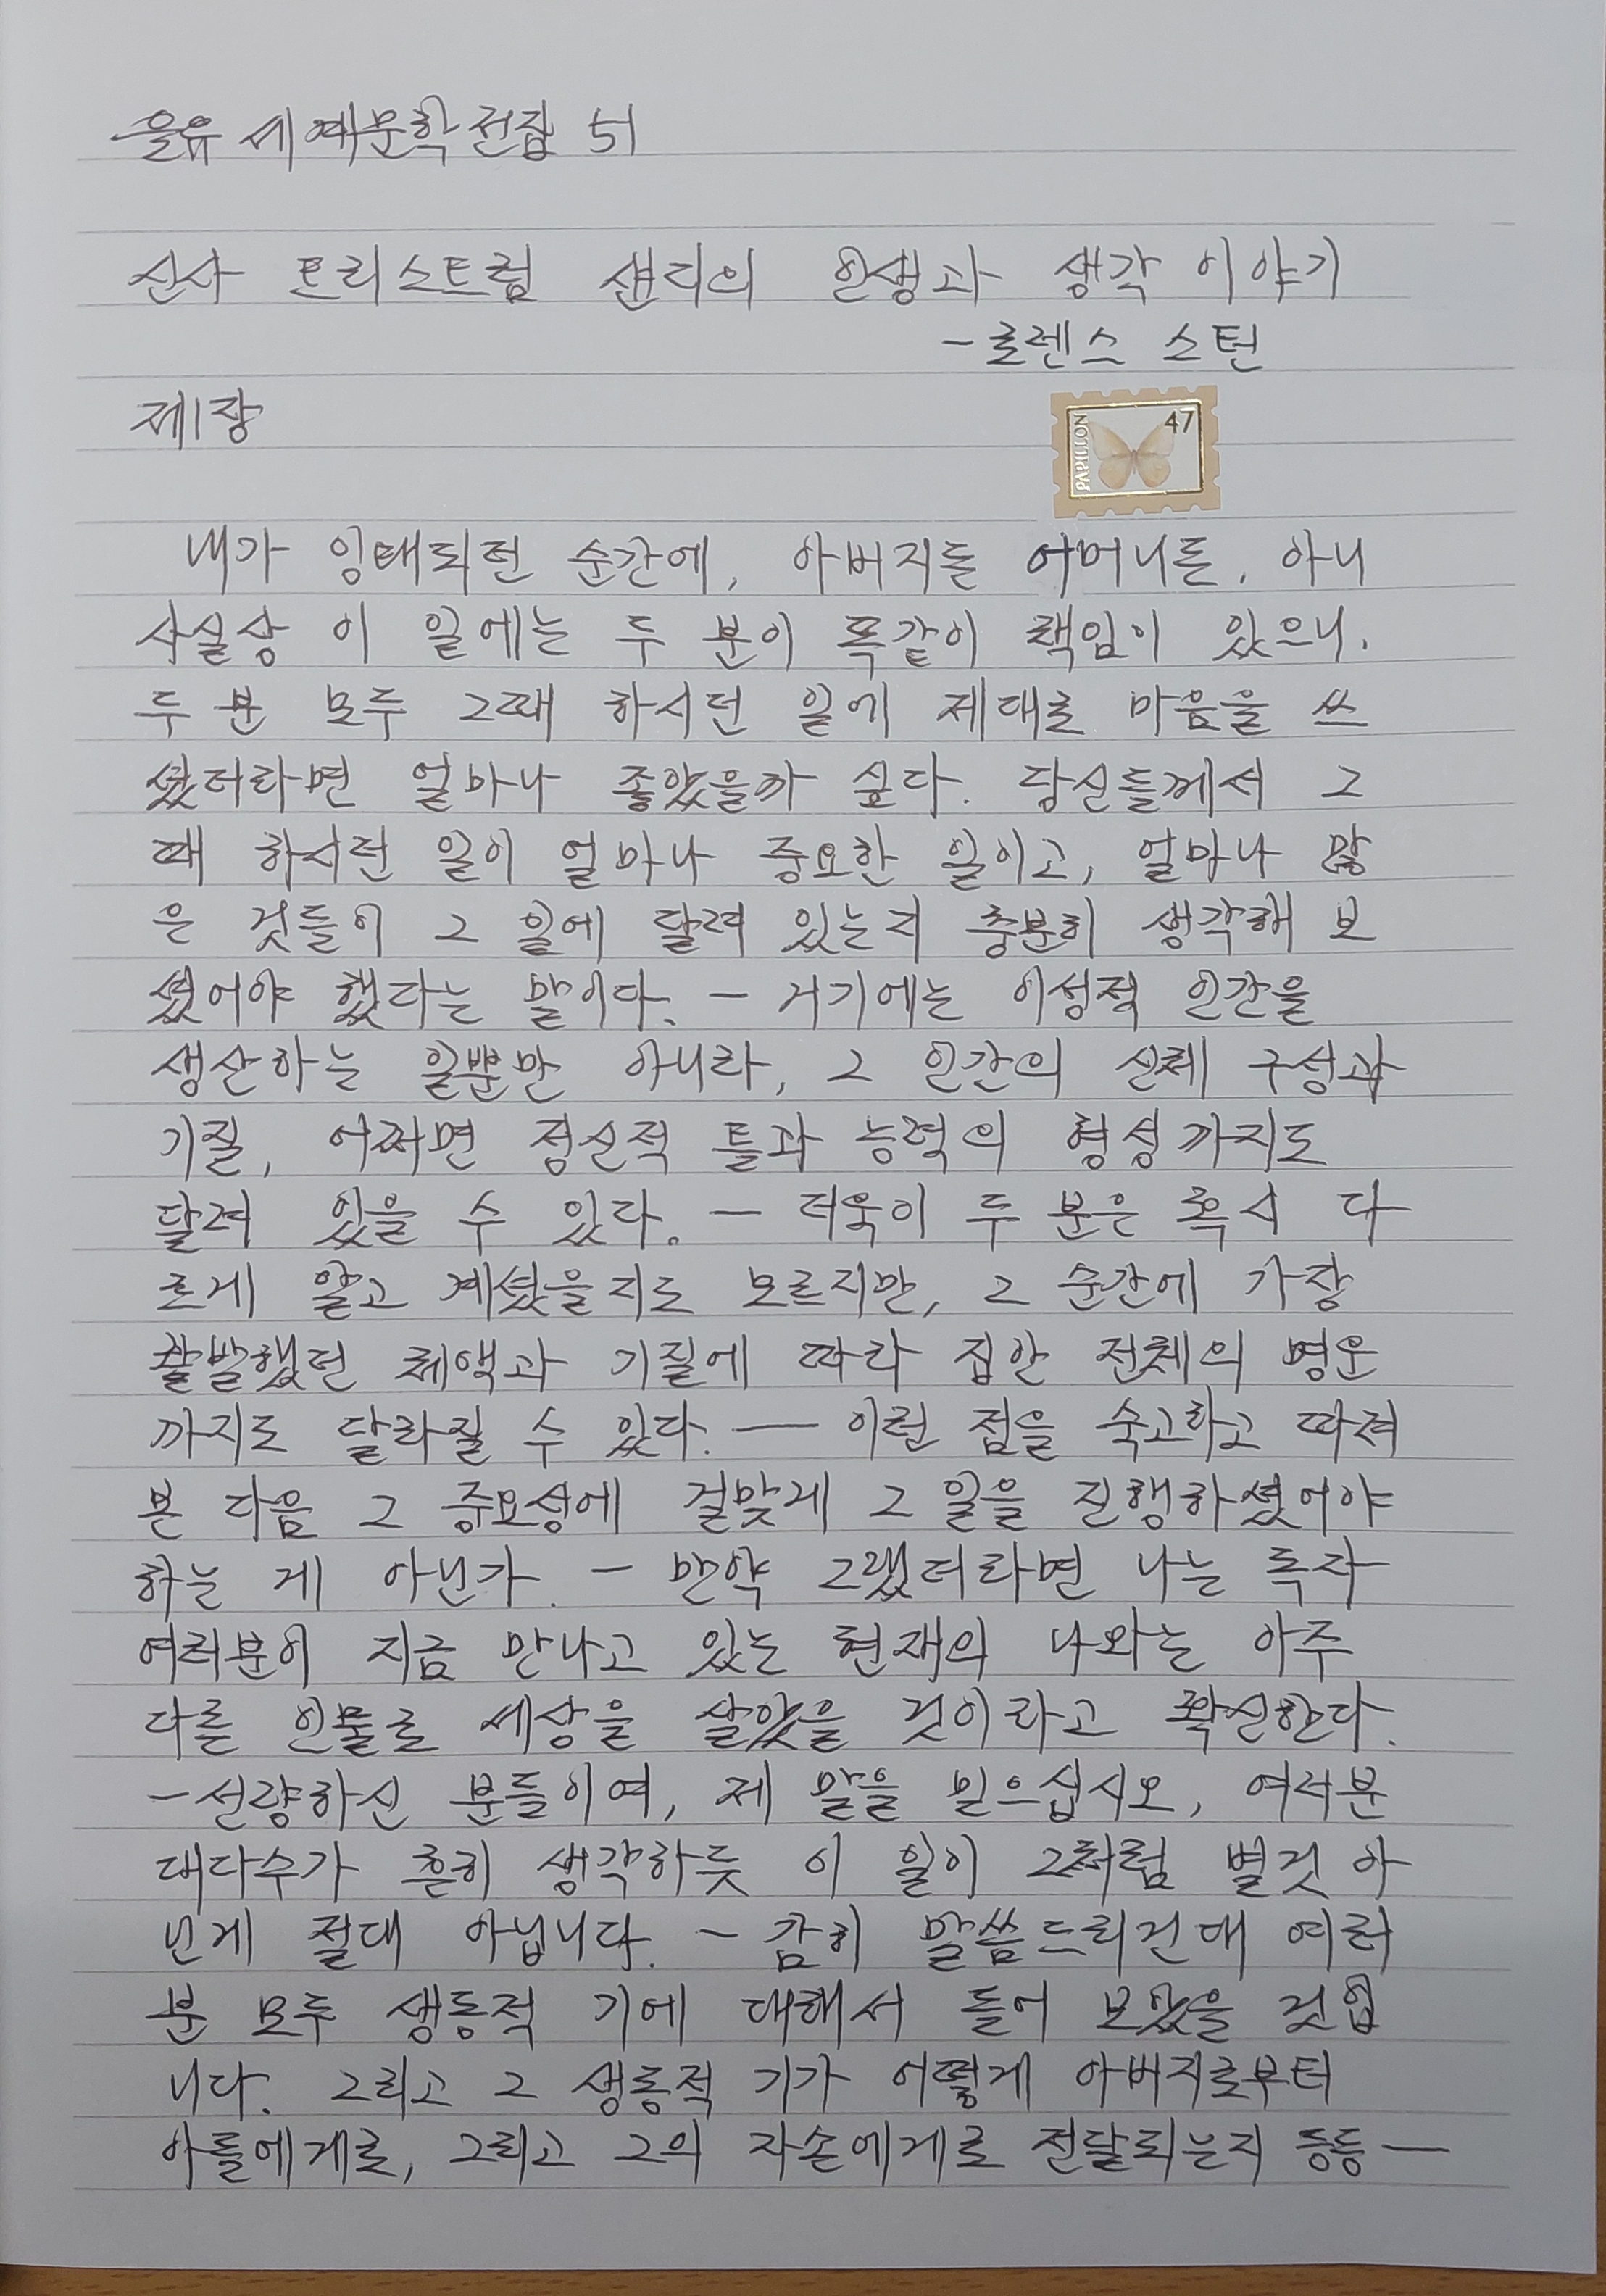 을유세계문학전집 51
신사 트리스트럼 샌디의 인생과 생각 이야기
- 로렌스 스턴
제1장
PAPILLON 47
내가 잉태되던 순간에, 아버지든 어머니든, 아니
사실상 이 일에는 두 분이 똑같이 책임이 있으니,
두 분 모두 그때 하시던 일에 제대로 마음을 쓰
셨더라면 얼마나 좋았을까 싶다. 당신들께서 그
때 하시던 일이 얼마나 중요한 일이고, 얼마나 많
은 것들이 그 일에 달려 있는지 충분히 생각해 보
셨어야 했다는 말이다. - 거기에는 이성적 인간을
생산하는 일뿐만 아니라, 그 인간의 신체 구성과
기질, 어쩌면 정신적 틀과 능력의 형성까지도
달려 있을 수 있다. - 더욱이 두 분은 혹시 다
르게 알고 계셨을지도 모르지만, 그 순간에 가장
활발했던 체액과 기질에 따라 집안 전체의 명운
까지도 달라질 수 있다. — 이런 점을 숙고하고 따져
본 다음 그 중요성에 걸맞게 그 일을 진행하셨어야
하는 게 아닌가. - 만약 그랬더라면 나는 독자
여러분이 지금 만나고 있는 현재의 나와는 아주
다른 인물로 세상을 살았을 것이라고 확신한다.
- 선량하신 분들이여, 제 말을 믿으십시오, 여러분
대다수가 흔히 생각하듯 이 일이 그처럼 별것 아
닌게 절대 아닙니다. - 감히 말씀드리건대 여러
분 모두 생동적 기에 대해서 들어 보았을 것입
니다. 그리고 그 생동적 기가 어떻게 아버지로부터
아들에게로, 그리고 그의 자손에게로 전달되는지 등등 —